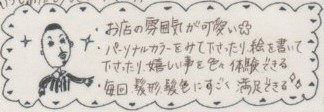 お店の雰囲気が可愛い☆
・パーソナルカラーをみて下さったり、絵を書いて
下さったり、嬉しい事を色々体験できる
・毎回、髪形、髪色にすごく満足できる